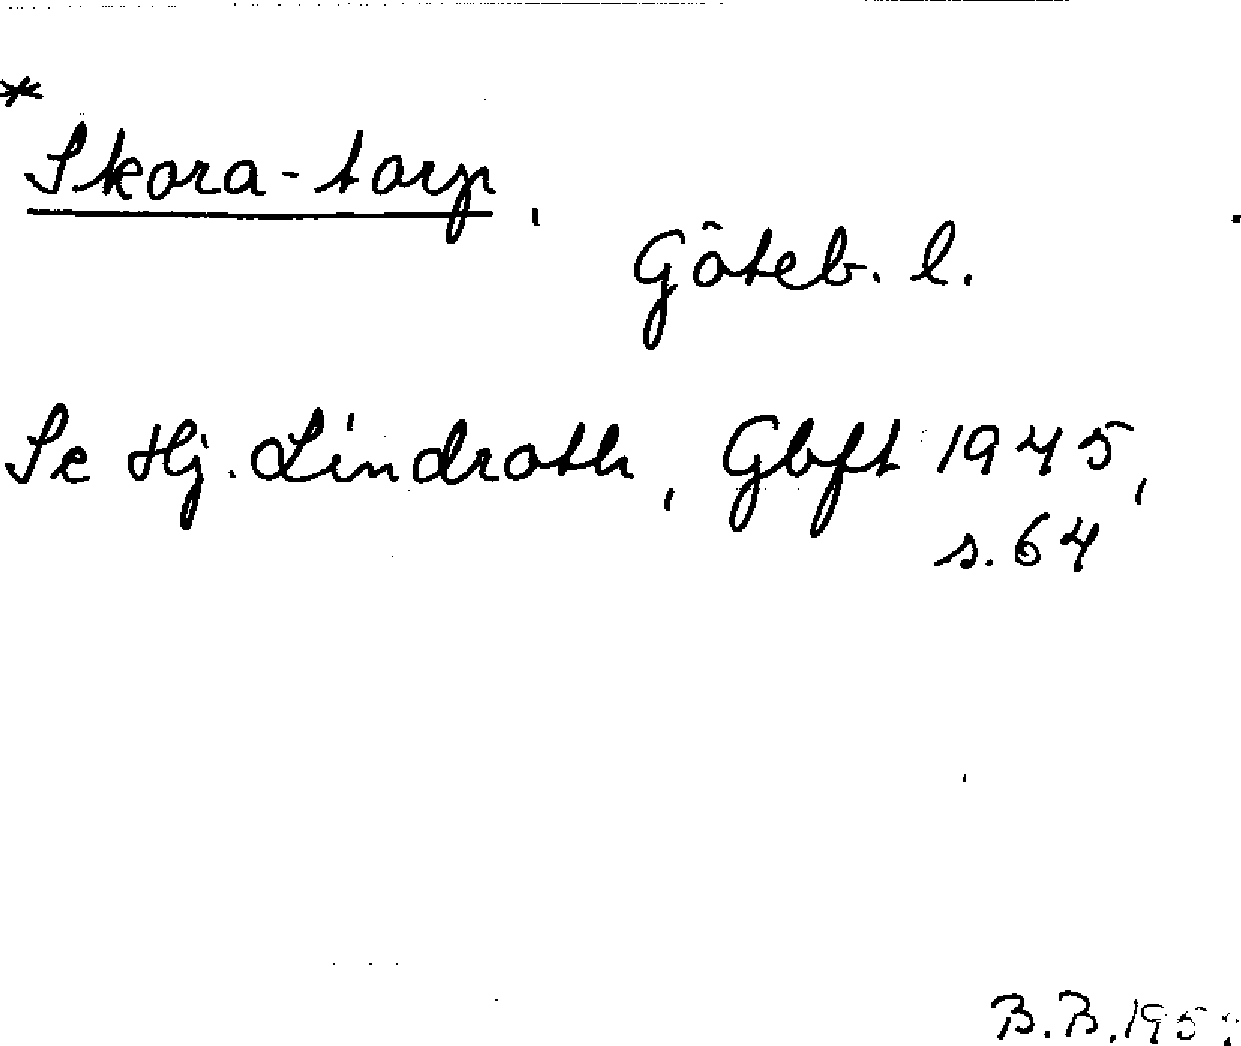 *
Skora-torp,
Göteb. l.
Se Hj. Lindroth, Gbft 1945,
s. 64
B.B.